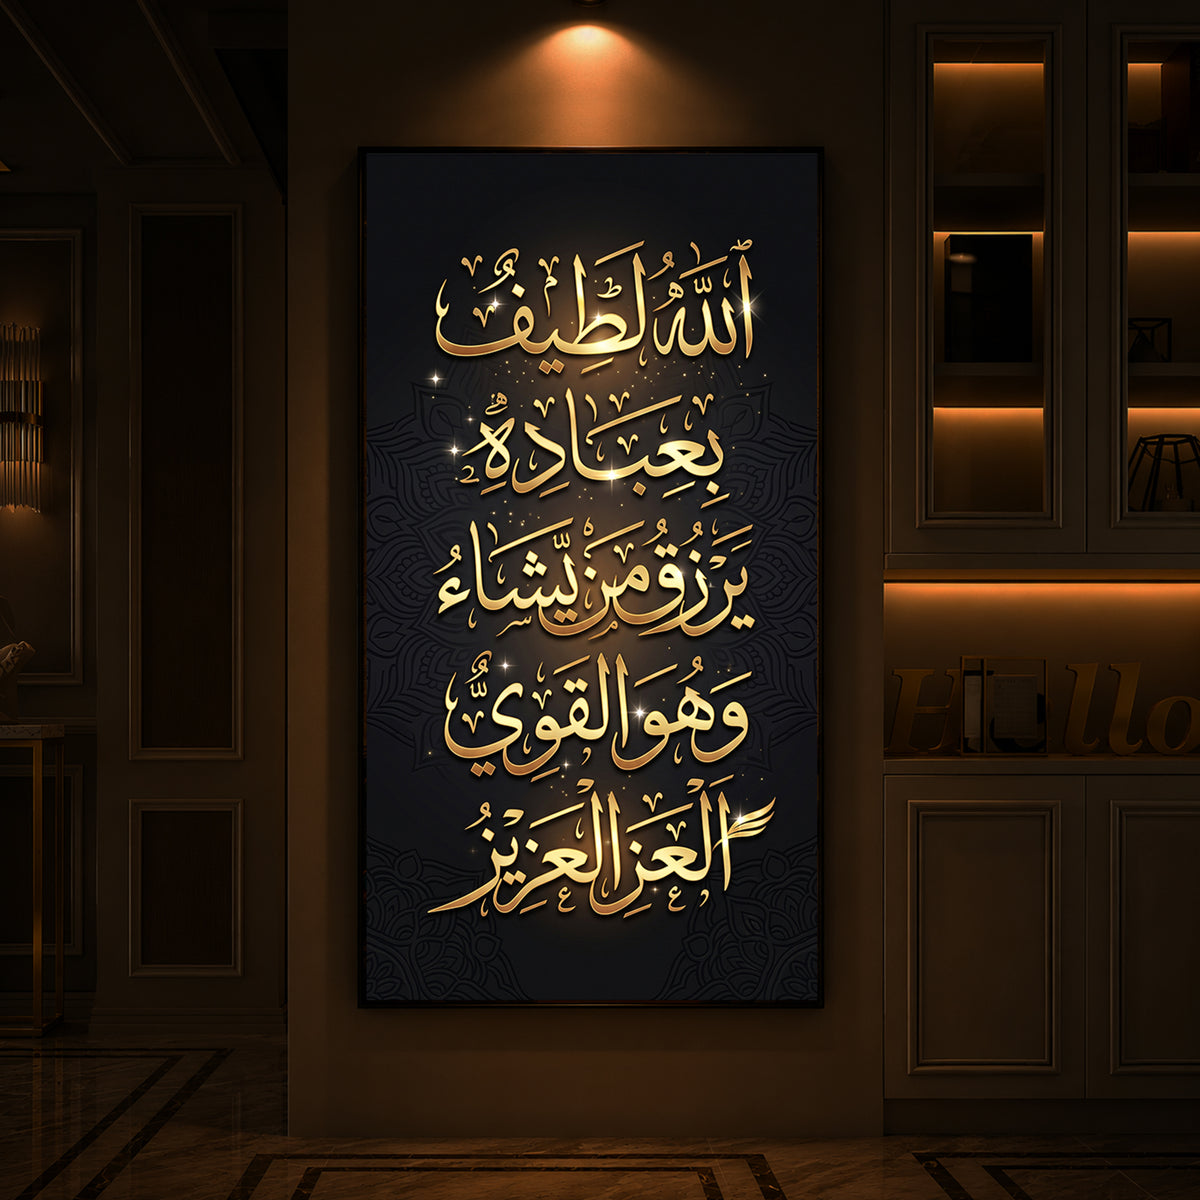 ٱللَّهُ لَطِيفٌ
بِعِبَادِهِۦ
يَرْزُقُ مَن يَّشَاءُ
وَهُوَ الْقَوِيُّ
ٱلْعَزِ الْعَزِيزُ
Hello